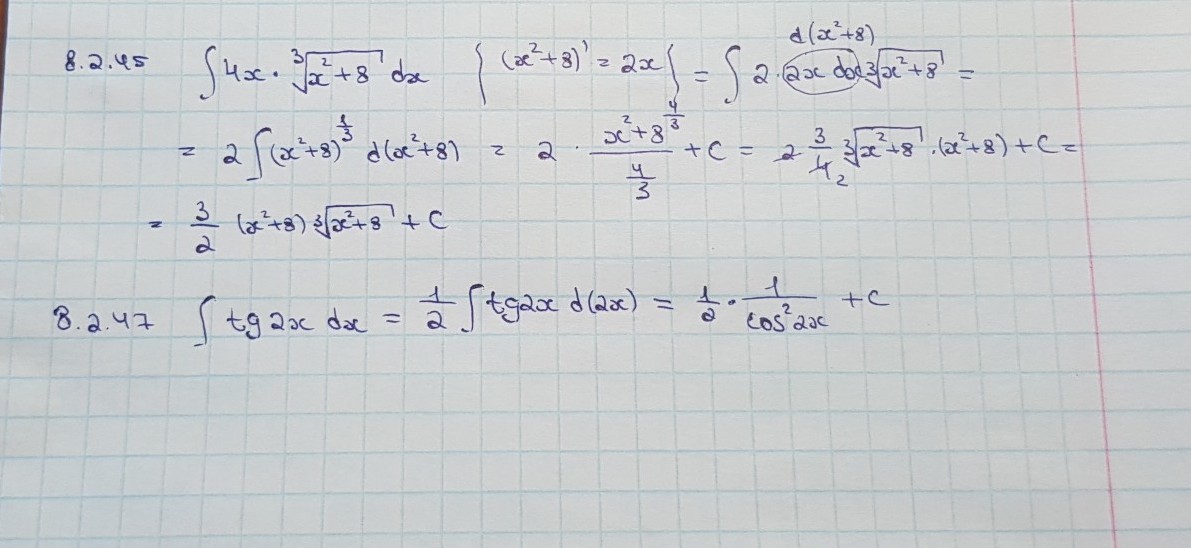 8.2.45 ∫4x · ∛(x²+8) dx {(x²+8)' = 2x} = ∫ 2 · 2x dx ∛(x²+8) = d(x²+8)
= 2 ∫(x²+8)^(1/3) d(x²+8) = 2 · (x²+8^(4/3))/(4/3) + C = 2 3/4 2 ∛(x²+8) · (x²+8) + C =
= 3/2 (x²+8) ∛(x²+8) + C
8.2.47 ∫ tg 2x dx = 1/2 ∫ tg2x d(2x) = 1/2 · 1/(cos² 2x) + C